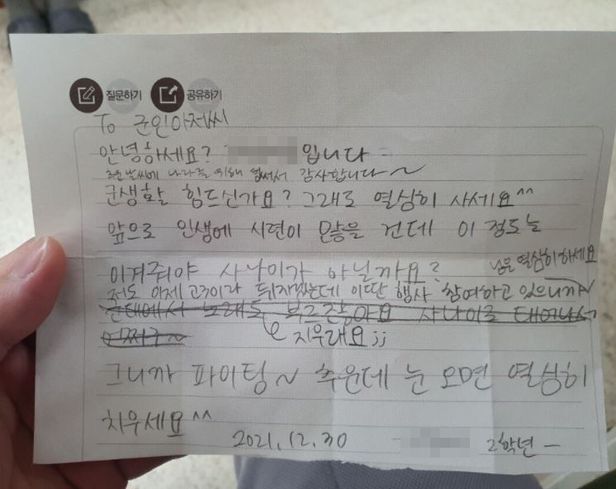 질문하기 공유하기
To 군인아저씨
안녕하세요? 입니다
추운 날씨에 나라를 위해 힘써서 감사합니다~
군생활 힘드신가요? 그래도 열심히 사세요^^
앞으로 인생에 시련이 많을 건데 이 정도는
이겨줘야 사나이가 아닐까요?
저도 이제 고3이라 뒤지겠는데 이딴 행사 참여하고 있으니까
님은 열심히 하세요
군대에서 노래도 부르잖아요 사나이로 태어나서
어쩌구~
지우래요;;
그니까 파이팅~ 추운데 눈 오면 열심히
치우세요^^
2021.12.30 2학년